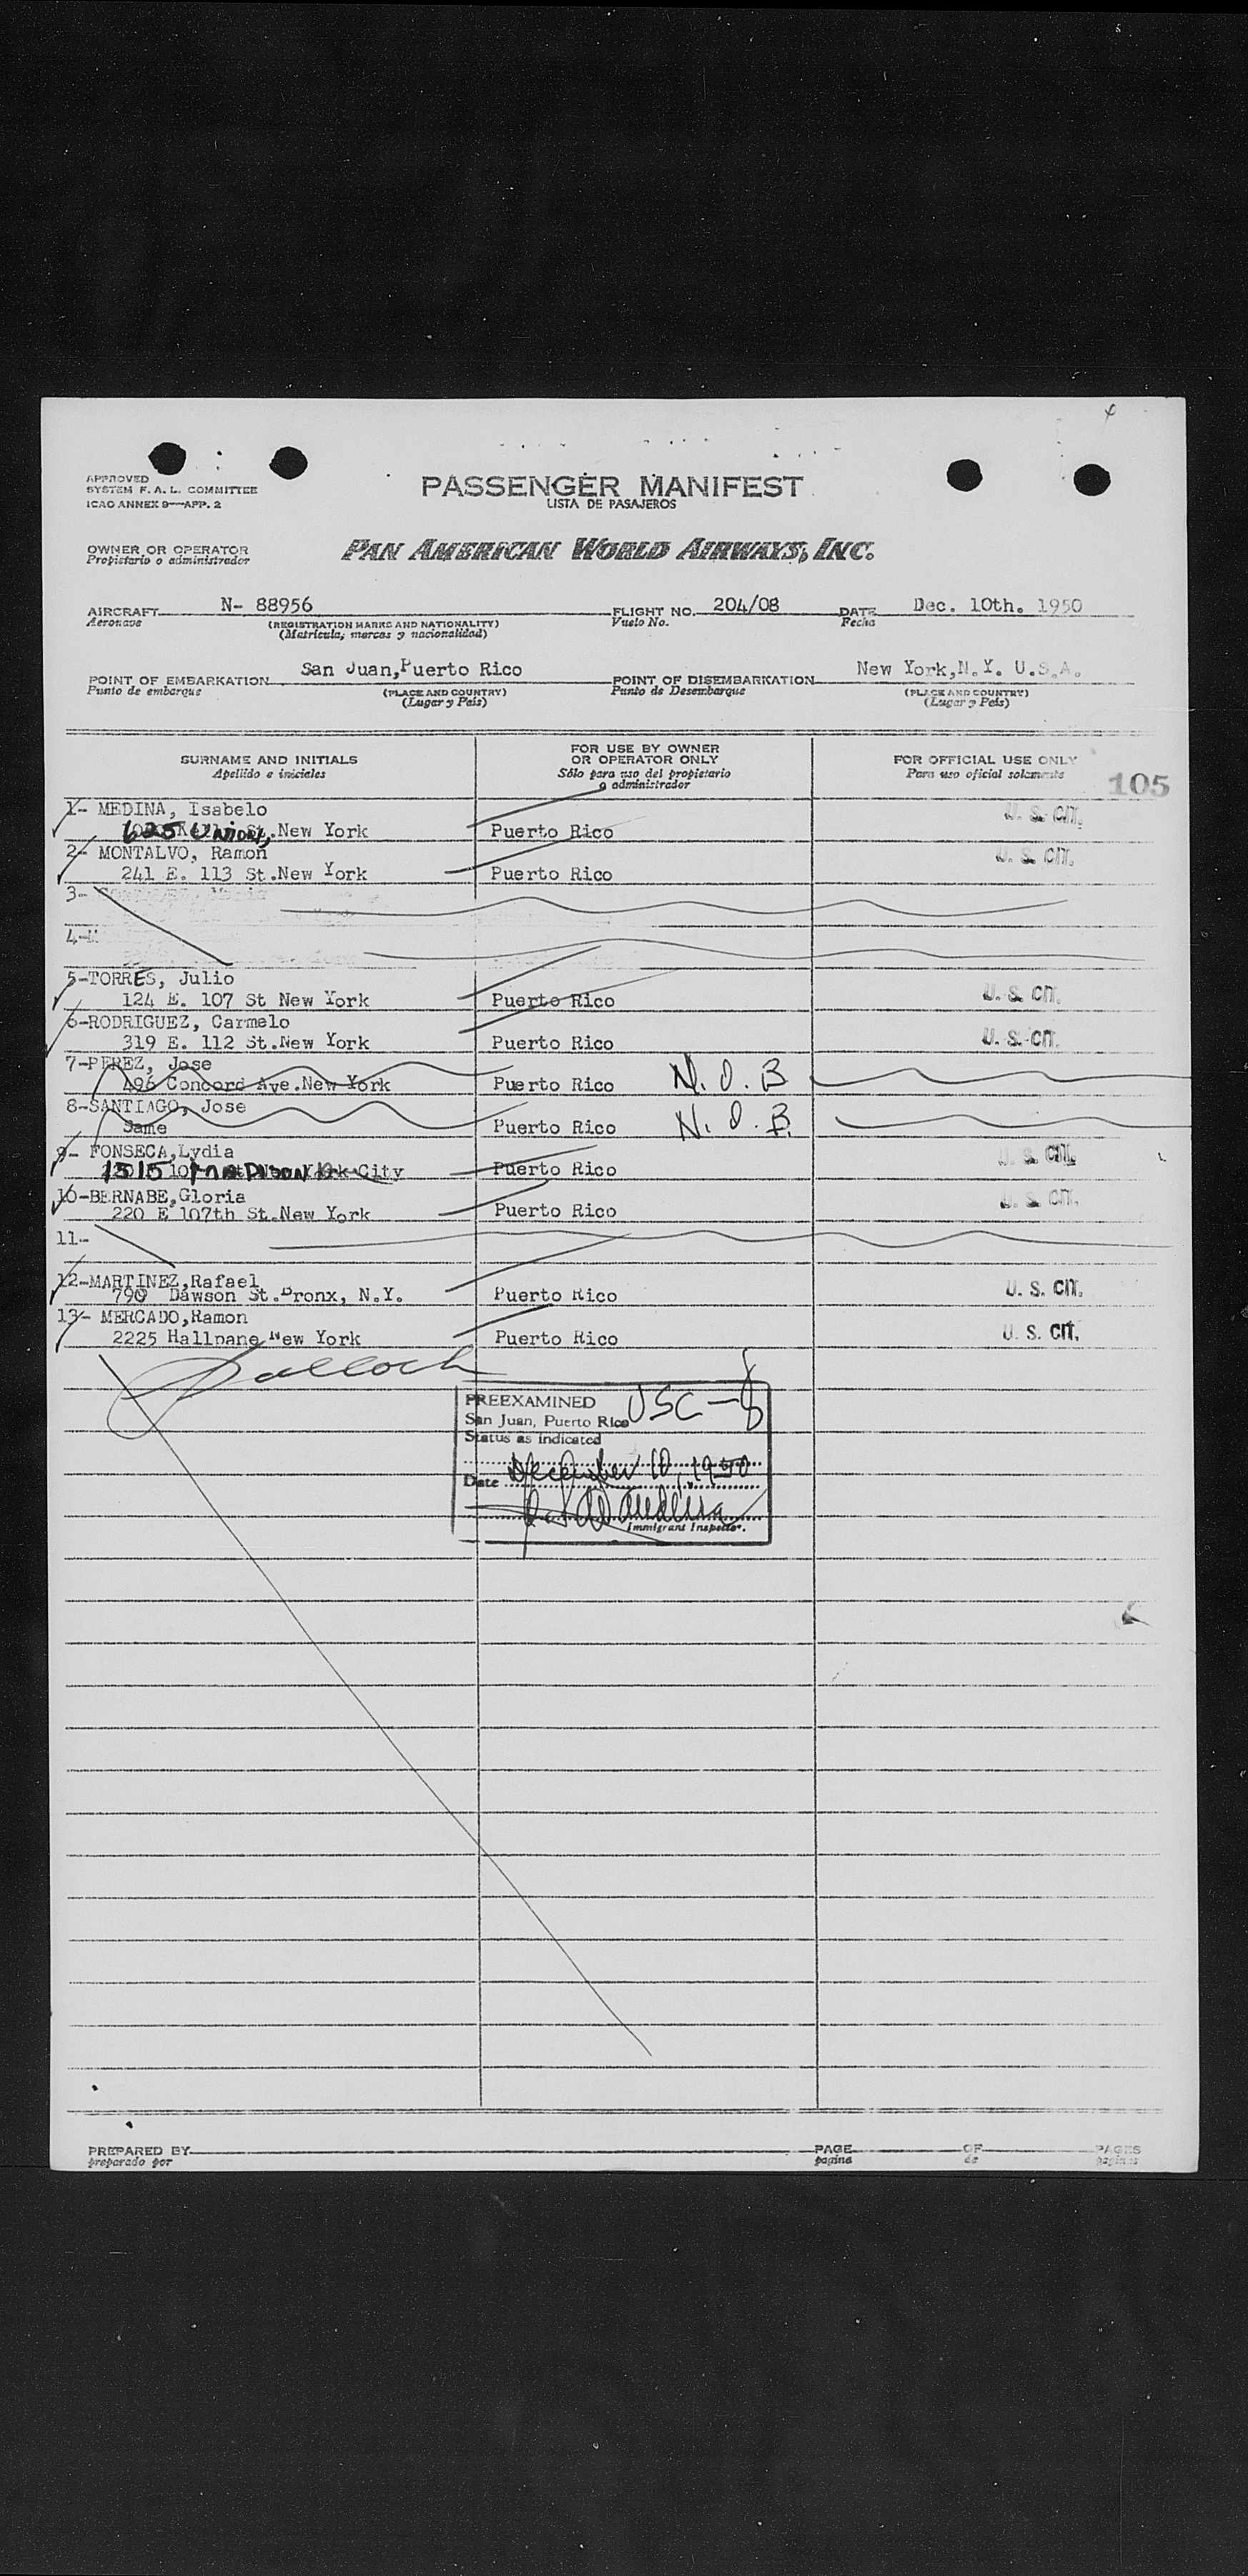 APPROVED
SYSTEM F. A. L. COMMITTEE
ICAO ANNEX 9—APP. 2
PASSENGER MANIFEST
LISTA DE PASAJEROS
OWNER OR OPERATOR
Propietario o administrador
PAN AMERICAN WORLD AIRWAYS, INC.
AIRCRAFT N- 88956 FLIGHT NO. 204/08 DATE Dec. 10th. 1950
Aeronave (REGISTRATION MARKS AND NATIONALITY) Vuelo No. Fecha
(Matrícula, marcas y nacionalidad)
POINT OF EMBARKATION San Juan,Puerto Rico POINT OF DISEMBARKATION New York,N.Y. U.S.A.
Punto de embarque (PLACE AND COUNTRY) Punto de Desembarque (PLACE AND COUNTRY)
(Lugar y País) (Lugar y País)
SURNAME AND INITIALS FOR USE BY OWNER OR OPERATOR ONLY FOR OFFICIAL USE ONLY
Apellido e iniciales Sólo para uso del propietario o administrador Para uso oficial solamente
105
1- MEDINA, Isabelo U. S. CIT.
625 UNION, St.New York Puerto Rico
2- MONTALVO, Ramon U. S. CIT.
241 E. 113 St.New York Puerto Rico
3-
4-
5-TORRES, Julio
124 E. 107 St New York Puerto Rico U. S. CIT.
6-RODRIGUEZ, Carmelo
319 E. 112 St.New York Puerto Rico U. S. CIT.
7-PEREZ, Jose
496 Concord Ave.New York Puerto Rico N. O. B
8-SANTIAGO, Jose
Same Puerto Rico N. O. B.
9- FONSECA,Lydia U. S. CIT.
1515 MADISON City Puerto Rico
10-BERNABE,Gloria U. S. CIT.
220 E 107th St.New York Puerto Rico
11-
12-MARTINEZ,Rafael U. S. CIT.
790 Dawson St.Bronx, N.Y. Puerto Rico
13- MERCADO,Ramon
2225 Hallpane New York Puerto Rico U. S. CIT.
PREEXAMINED USC-8
San Juan, Puerto Rico
Status as indicated
Date December 10, 1950
Immigrant Inspector.
PREPARED BY PAGE OF PAGES
preparado por página de páginas